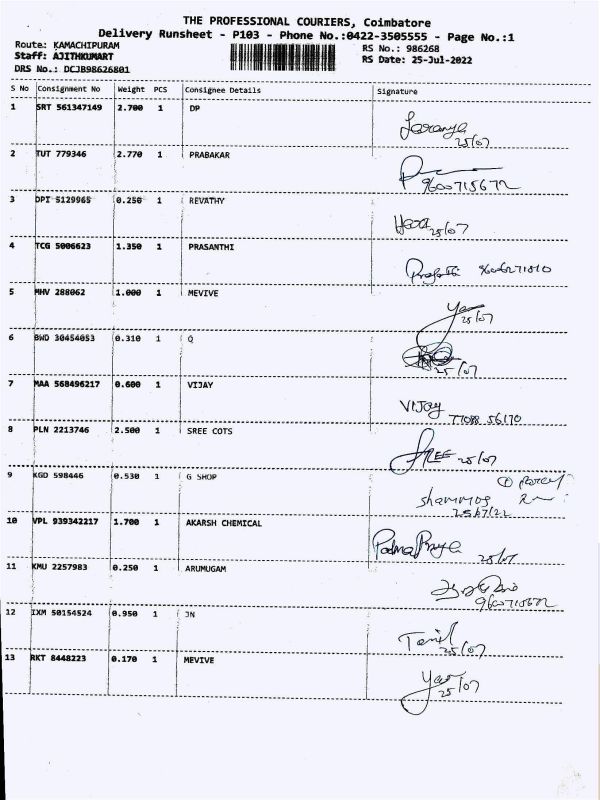 THE PROFESSIONAL COURIERS, Coimbatore
Delivery Runsheet - P103 - Phone No.:0422-3505555 - Page No.:1
Route: KAMACHIPURAM
RS No.: 986268
Staff: AJITHKUMART
RS Date: 25-Jul-2022
DRS No.: DCJB98626801
S No Consignment No Weight PCS Consignee Details Signature
1 SRT 561347149 2.700 1 DP
Saranya
25/07
2 TUT 779346 2.770 1 PRABAKAR
9600715672
3 DPI 5129965 0.250 1 REVATHY
25/07
4 TCG 5006623 1.350 1 PRASANTHI
5 MHV 288062 1.000 1 MEVIVE
25/07
6 BWD 30454053 0.310 1 Q
25/07
7 MAA 568496217 0.600 1 VIJAY
VIJay
77088 56170
8 PLN 2213746 2.500 1 SREE COTS
SREE 25/07
9 KGD 598446 0.530 1 G SHOP
25/7/22
10 VPL 939342217 1.700 1 AKARSH CHEMICAL
Padma Priya 25/07
11 KMU 2257983 0.250 1 ARUMUGAM
9600715672
12 IXM 50154524 0.950 1 JN
Tamil
25/07
13 RKT 8448223 0.170 1 MEVIVE
25/07